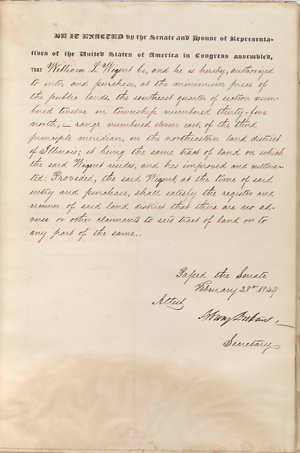 BE IT ENACTED by the Senate and House of Representa-
tives of the United States of America in Congress assembled,
THAT William L. Wigent be, and he is hereby, authorized
to enter and purchase, at the minimum price of
the public lands, the southeast quarter of section num-
bered twelve in township numbered thirty-five
north, – range numbered eleven east of the third
principle meridian, in the northeastern land district
of Illinois; it being the same tract of land on which
the said Wigent resides, and has improved and cultiva-
ted: Provided, the said Wigent, at the time of said
entry and purchase, shall satisfy the register and
receiver of said land district that there are no ad-
verse or other claimants to said tract of land or to
any part of the same.
Passed the Senate
February 28th 1849
Attest
Asbury Dickins
Secretary